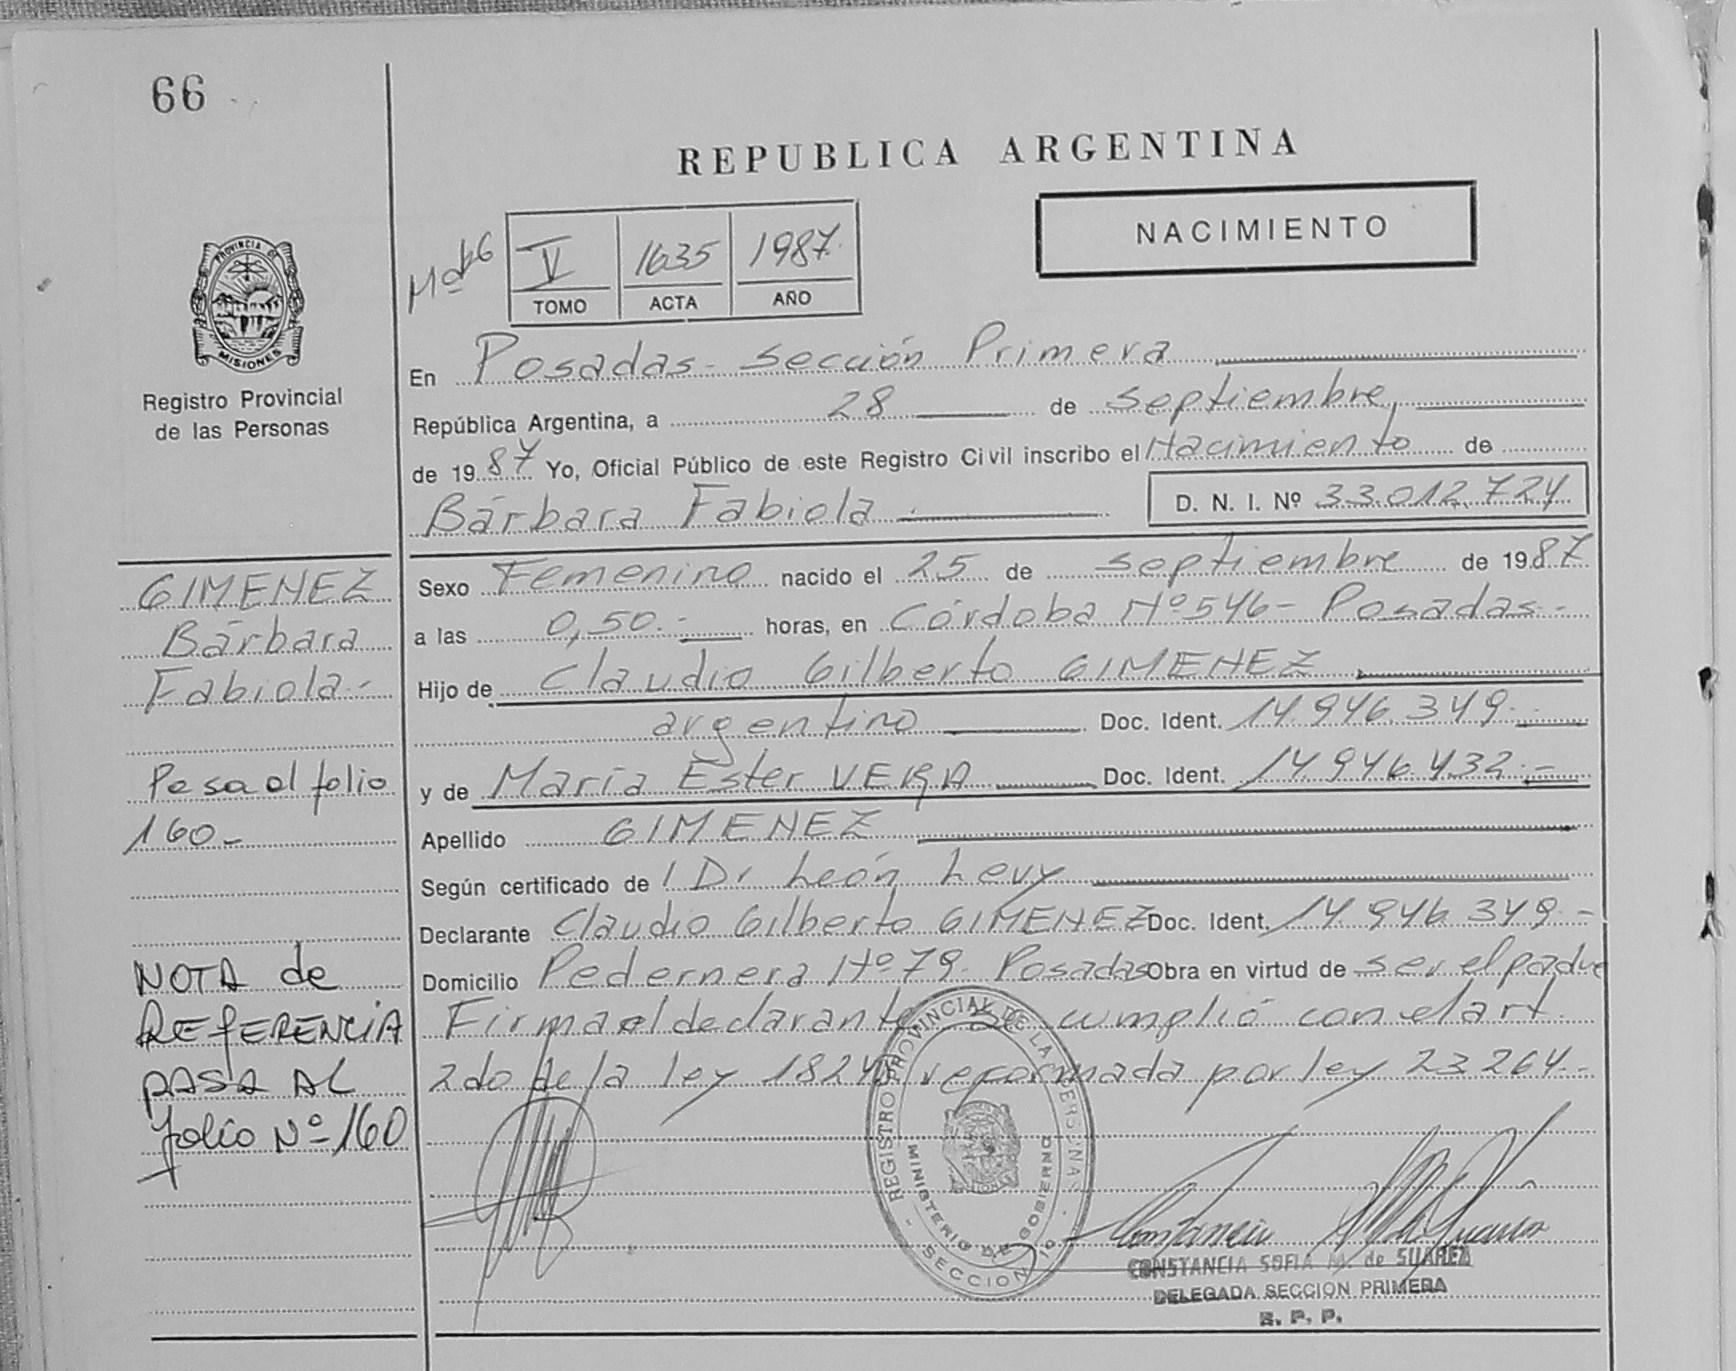 66
REPUBLICA ARGENTINA
NACIMIENTO
V 1635 1987.
TOMO ACTA AÑO
PROVINCIA DE
MISIONES
Registro Provincial
de las Personas
En Posadas - Sección Primera
República Argentina, a 28 de septiembre,
de 1987 Yo, Oficial Público de este Registro Civil inscribo el Nacimiento de
Bárbara Fabiola D. N. I. Nº 33.012.724
Sexo Femenino nacido el 25 de septiembre de 1987
a las 0,50.- horas, en Córdoba Nº 546 - Posadas.-
Hijo de Claudio Gilberto GIMENEZ
argentino Doc. Ident. 14.946.349.-
y de María Ester VERA Doc. Ident. 14.946.432.-
Apellido GIMENEZ
Según certificado de l Dr León Levy
Declarante Claudio Gilberto GIMENEZ Doc. Ident. 14.946.349.-
Domicilio Pedernera Nº 79. Posadas Obra en virtud de ser el padre
Firma el declarante. Se cumplió con el art.
2do de la ley 18248 reformada por ley 23264.-
GIMENEZ
Bárbara
Fabiola.-
Pasa al folio
160-
NOTA de
REFERENCIA
PASA AL
folio Nº 160
REGISTRO PROVINCIAL DE LAS PERSONAS
MINISTERIO DE GOBIERNO
SECCION 1º
CONSTANCIA SOFIA M. de SUAREZ
DELEGADA SECCION PRIMERA
R. P. P.